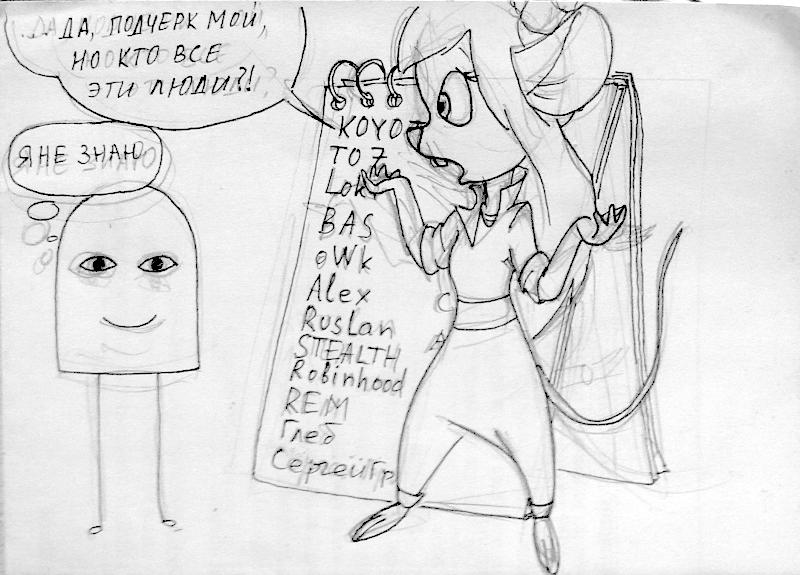 ДА ДА, ПОДЧЕРК МОЙ,
НО КТО ВСЕ
ЭТИ ЛЮДИ?!
Я НЕ ЗНАЮ
KOYO
TO 7
Loki
BAS
oWk
Alex
Ruslan
STEALTH
Robinhood
REM
Глеб
СергейГр